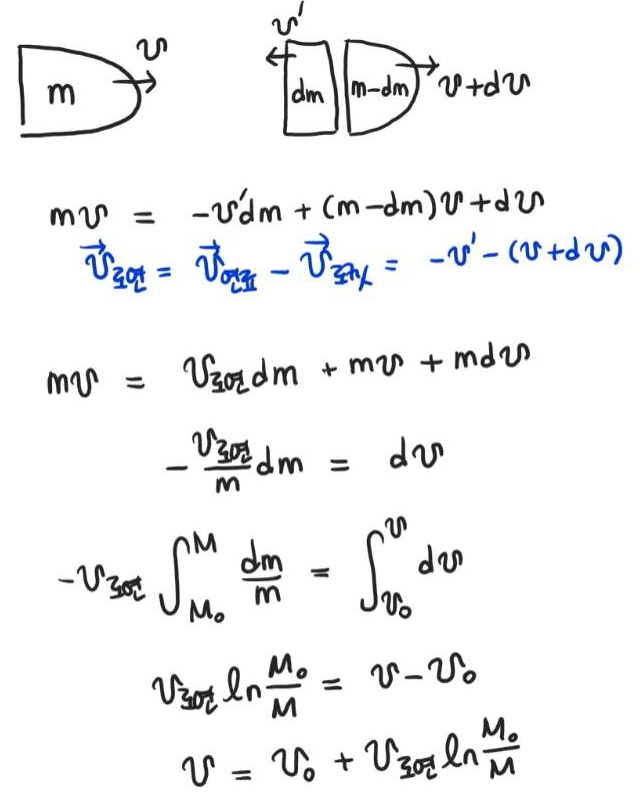 m v v' dm m-dm v+dv
mv = -v'dm + (m-dm)v+dv
v⃗로연 = v⃗연료 - v⃗로켓 = -v' - (v+dv)
mv = v로연 dm + mv + mdv
- v로연/m dm = dv
-v로연 ∫_{M₀}^{M} dm/m = ∫_{v₀}^{v} dv
v로연 ln M₀/M = v - v₀
v = v₀ + v로연 ln M₀/M